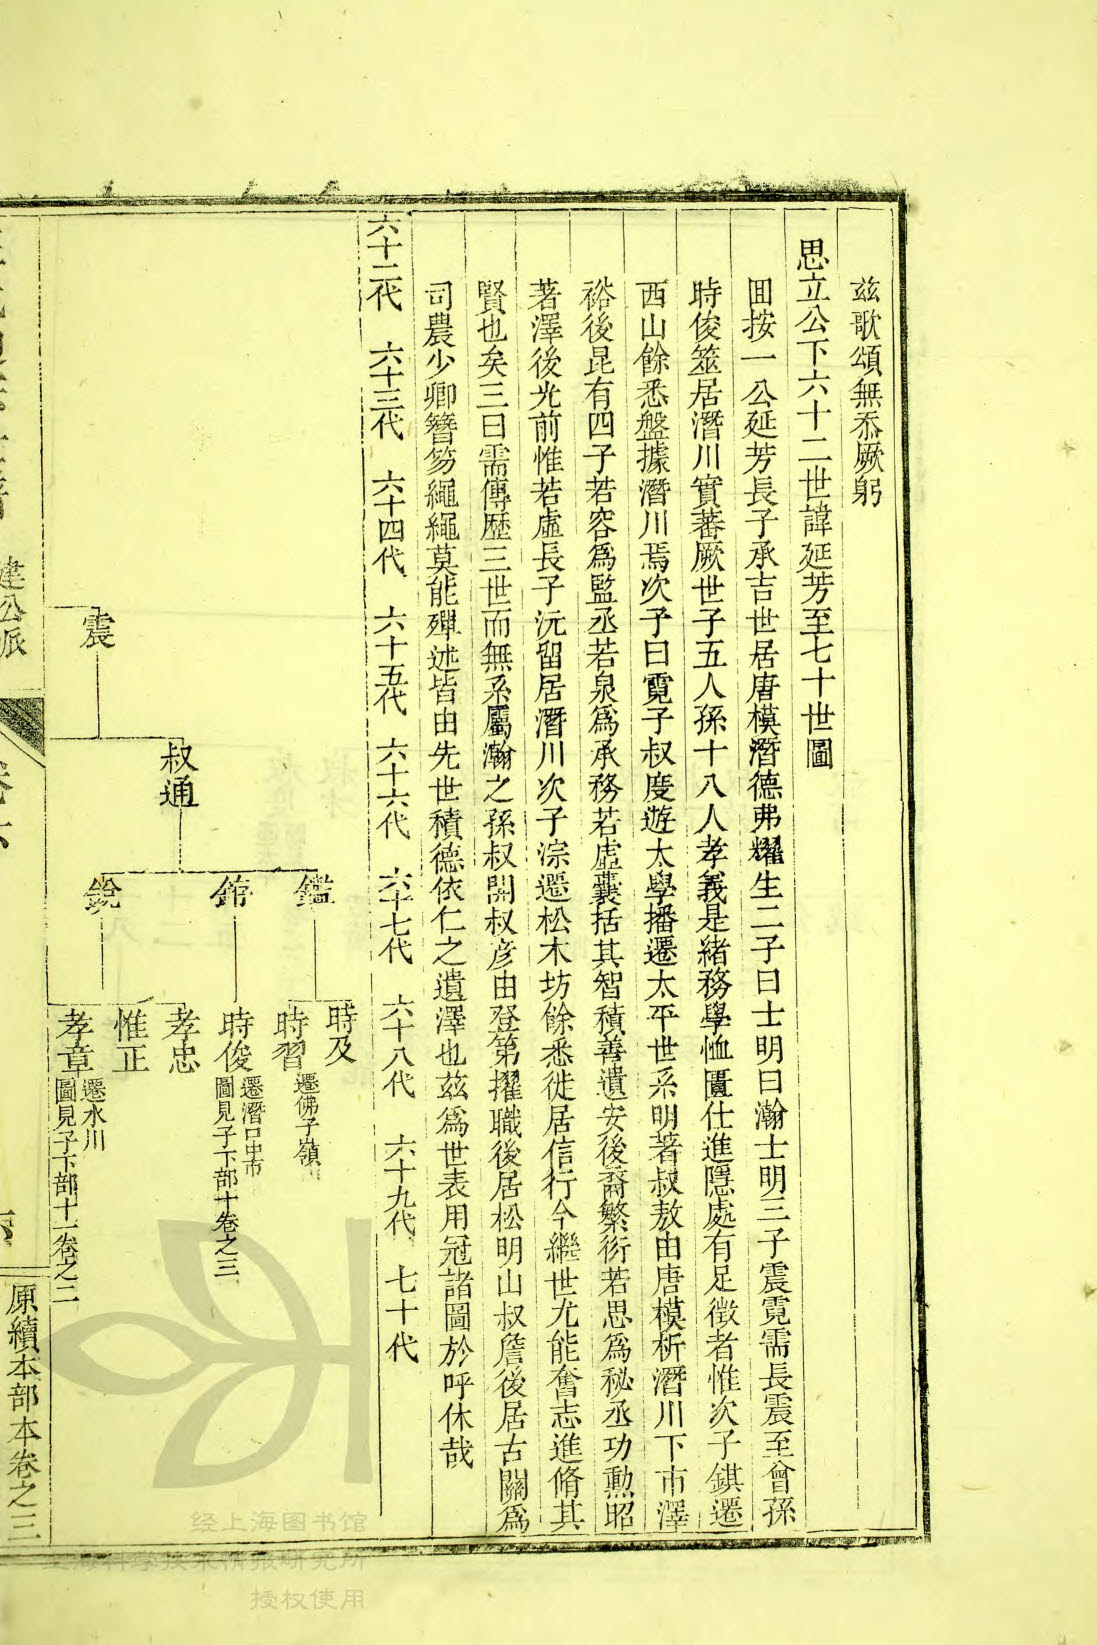 茲歌頌無忝厥躬
思立公下六十二世諱延芳至七十世圖
囬按一公延芳長子承吉世居唐模潛德弗耀生二子曰士明曰瀚士明三子震霓需長震至曾孫
時俊筮居潛川實蕃厥世子五人孫十八人孝義是緒務學恤匱仕進隱處有足徵者惟次子錤遷
西山餘悉盤據潛川焉次子曰霓子叔度遊太學播遷太平世系明著叔敖由唐模析潛川下市澤
裕後昆有四子若容爲監丞若泉爲承務若虛囊括其智積善遺安後裔繁衍若思爲秘丞功勲昭
著澤後光前惟若虛長子沅留居潛川次子淙遷松木坊餘悉徙居信行今繼世尤能奮志進脩其
賢也矣三曰需傳歷三世而無系屬瀚之孫叔開叔彦由登第擢職後居松明山叔詹後居古關爲
司農少卿簪笏繩繩莫能殫述皆由先世積德依仁之遺澤也茲爲世表用冠諸圖於呼休哉
六十二代 六十三代 六十四代 六十五代 六十六代 六十七代 六十八代 六十九代 七十代
震
叔通
鑑
錧
銳
時及
時習 遷佛子嶺
時俊 遷潛口中市
圖見子下部十卷之三
孝忠
惟正
孝章 遷水川
圖見子下部十一卷之二
建公派
卷六
六
原續本部本卷之三
经上海图书馆
上海科学技术情报研究所
授权使用